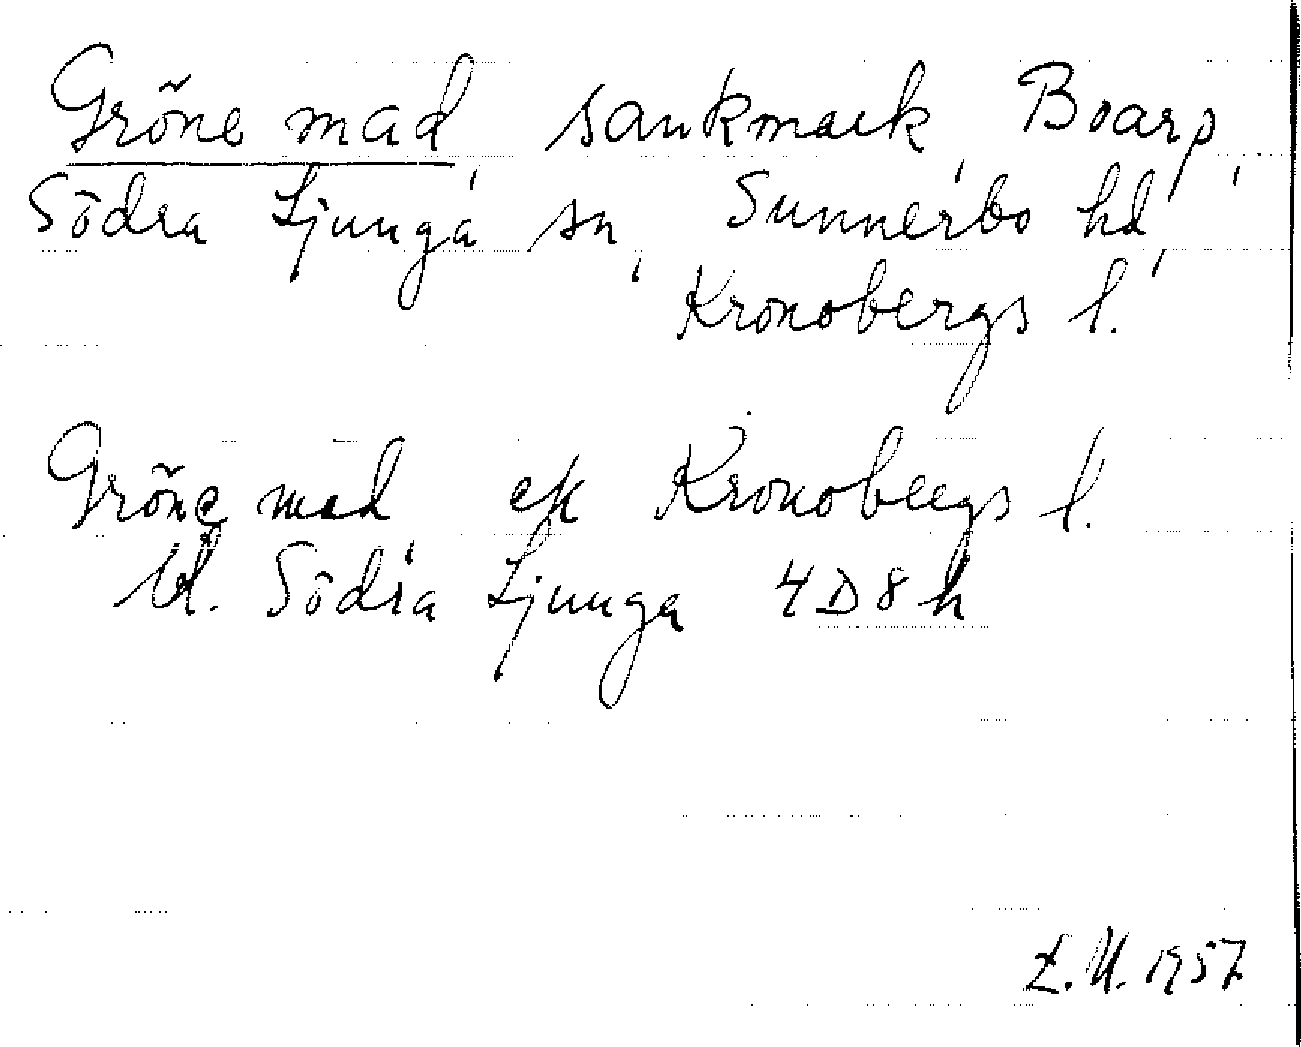 Gröne mad, sankmark, Boarp,
Södra Ljunga sn, Sunnerbo hd,
Kronobergs l.
Gröne mad ek Kronobergs l.
Bl. Södra Ljunga 4D8h
L.U. 1957